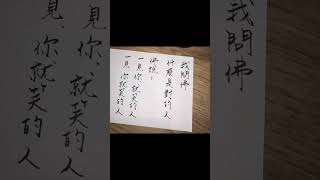 我問佛
什麼是對的人
佛說：
一見你就笑的人
一見你就笑的人
見你就笑的人